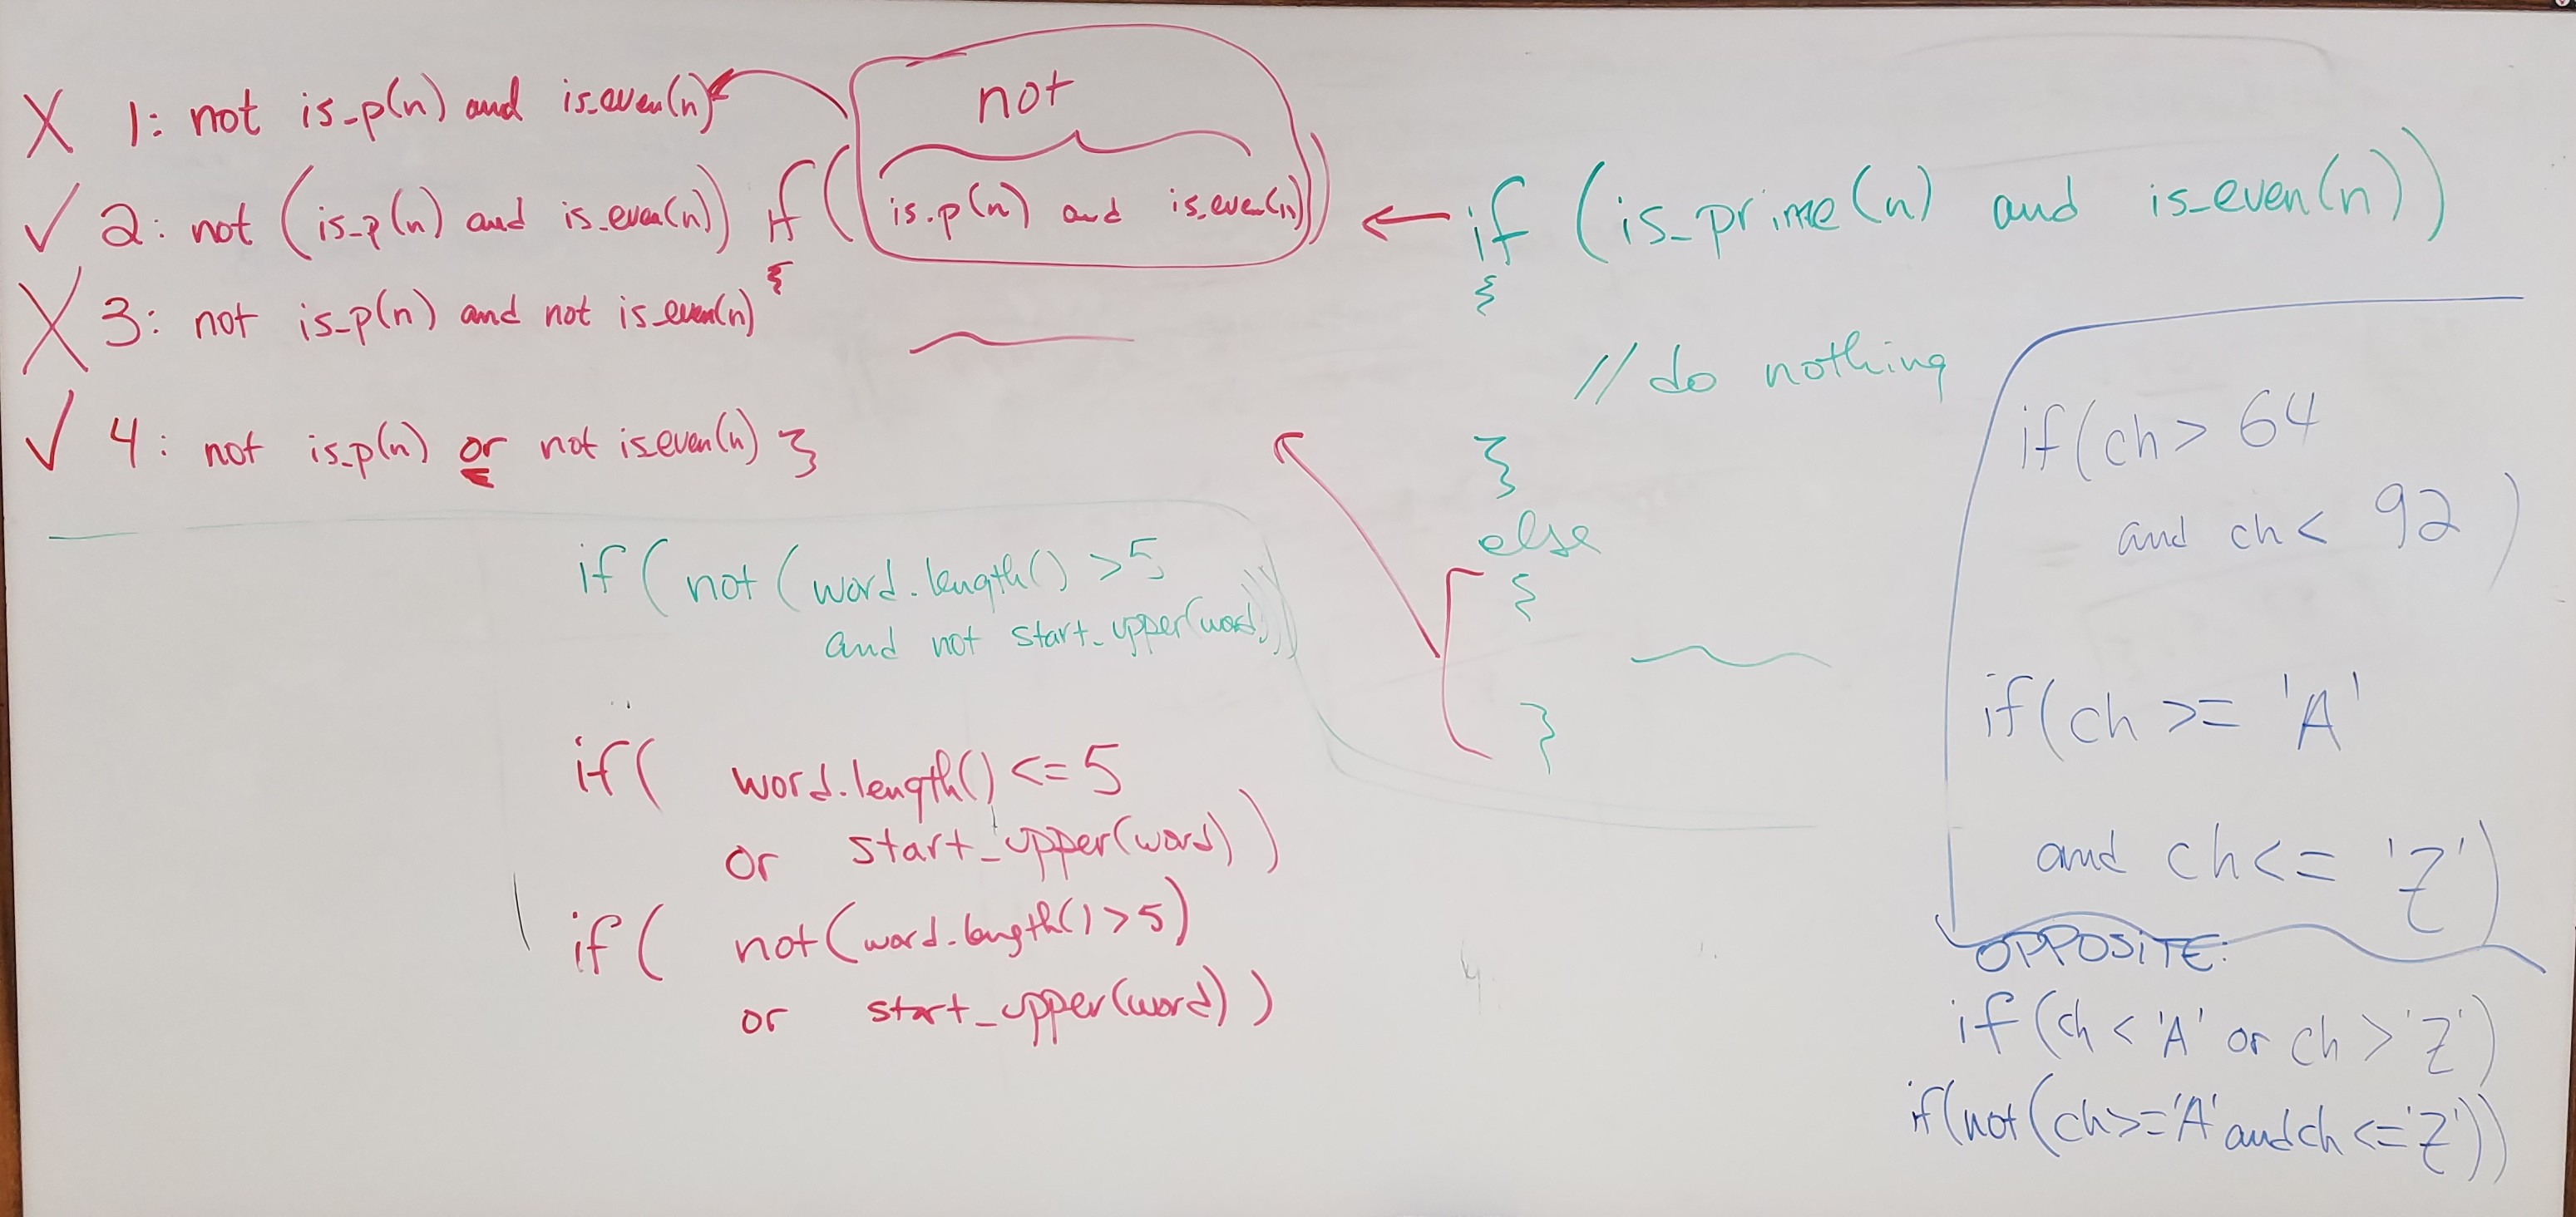 X 1: not is_p(n) and is_even(n)
✓ 2: not (is_p(n) and is_even(n))
X 3: not is_p(n) and not is_even(n)
✓ 4: not is_p(n) or not is even(n)
not
if (is_p(n) and is_even(n))
{
}
if (is_prime(n) and is_even(n))
{
// do nothing
}
else
{
}
if (not (word.length() > 5
and not start_upper(word)))
if ( word.length() <= 5
or start_upper(word))
if ( not (word.length() > 5)
or start_upper(word))
if (ch > 64
and ch < 92)
if (ch >= 'A'
and ch <= 'Z')
OPPOSITE:
if (ch < 'A' or ch > 'Z')
if (not (ch >= 'A' and ch <= 'Z'))